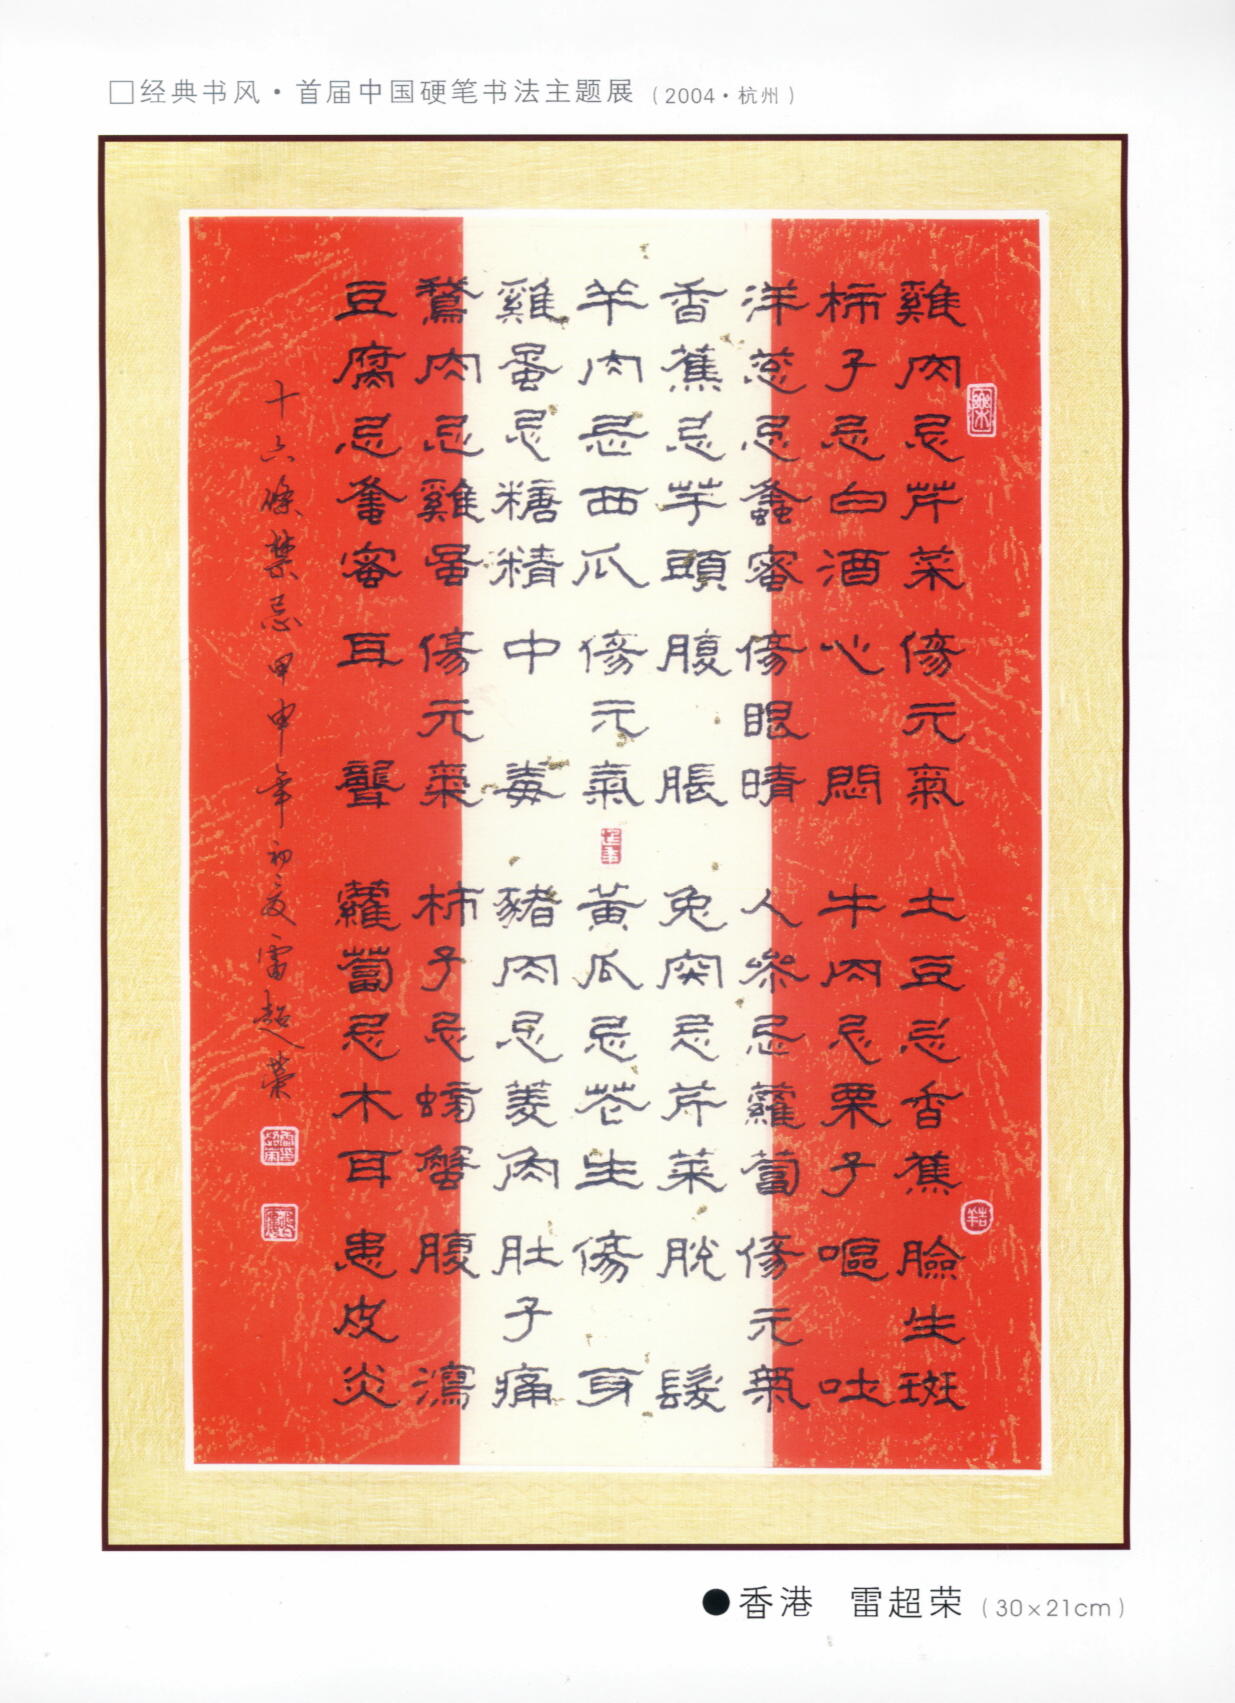 □经典书风·首届中国硬笔书法主题展（2004·杭州）
雞肉忌芹菜傷元氣 土豆忌香蕉臉生斑
柿子忌白酒心悶 牛肉忌栗子嘔吐
洋葱忌蜂蜜傷眼睛 人參忌蘿蔔傷元氣
香蕉忌芋頭腹脹 兔肉忌芹菜脫髮
羊肉忌西瓜傷元氣 黃瓜忌花生傷身
雞蛋忌糖精中毒 豬肉忌菱肉肚子痛
鵞肉忌雞蛋傷元氣 柿子忌螃蟹腹瀉
豆腐忌蜂蜜耳聾 蘿蔔忌木耳患皮炎
十六條禁忌甲申年初夏雷超榮
●香港 雷超荣（30×21cm）